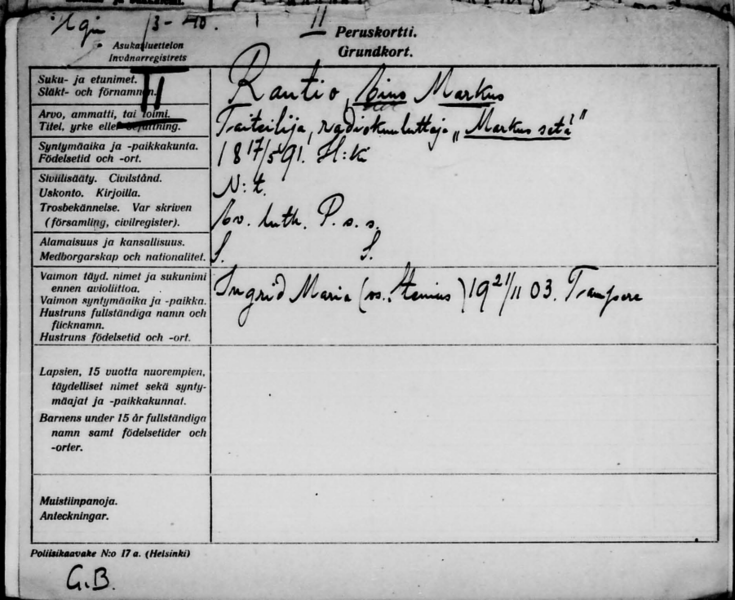 3-40. II
Peruskortti.
Grundkort.
Asukasluettelon
Invånarregistrets
Suku- ja etunimet.
Släkt- och förnamnen.
II
Rautio, Eino Markus
Arvo, ammatti, tai toimi.
Titel, yrke eller befattning.
Taiteilija, radiokuuluttaja "Markus setä"
Syntymäaika ja -paikkakunta.
Födelsetid och -ort.
18 17/5 91. H:ki
Siviilisääty. Civilstånd.
N:t.
Uskonto. Kirjoilla.
Trosbekännelse. Var skriven
(församling, civilregister).
Ev. luth. P. s. s.
Alamaisuus ja kansallisuus.
Medborgarskap och nationalitet.
S. S.
Vaimon täyd. nimet ja sukunimi
ennen avioliittoa.
Vaimon syntymäaika ja -paikka.
Hustruns fullständiga namn och
flicknamn.
Hustruns födelsetid och -ort.
Ingrid Maria (os. Stenius) 19 21/11 03. Tampere
Lapsien, 15 vuotta nuorempien,
täydelliset nimet sekä synty-
mäajat ja -paikkakunnat.
Barnens under 15 år fullständiga
namn samt födelsetider och
-orter.
Muistiinpanoja.
Anteckningar.
Poliisikaavake N:o 17 a. (Helsinki)
G.B.